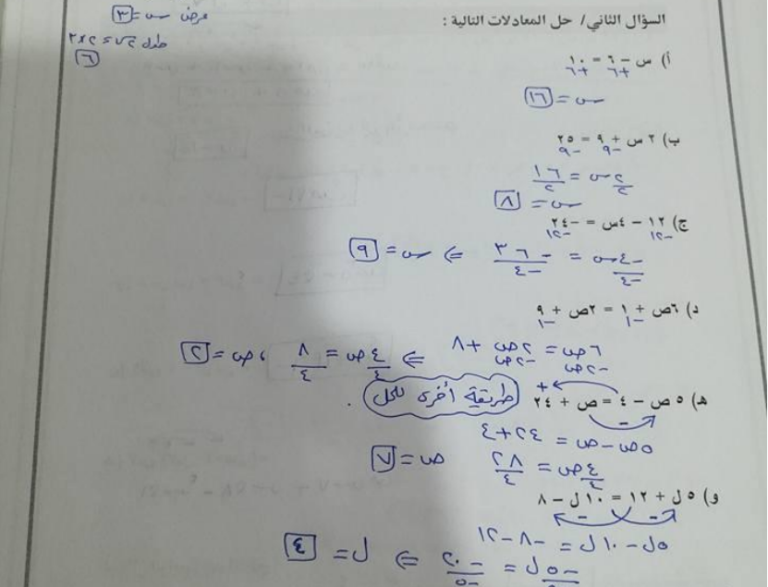 عرض س = ٣
طول س٢ = ٢×٣
٦
السؤال الثاني/ حل المعادلات التالية :
أ) س – ٦ = ١٠
+٦ +٦
س = ١٦
ب) ٢ س + ٩ = ٢٥
-٩ -٩
٢س/٢ = ١٦/٢
س = ٨
ج) ١٢ – ٤س = –٢٤
-١٢ -١٢
-٤س/-٤ = -٣٦/-٤ ⇐ س = ٩
د) ٦ص + ١ = ٢ص + ٩
-١ -١
٦ص = ٢ص + ٨ ⇐ ٤ص/٤ = ٨/٤ ، ص = ٢
-٢ص -٢ص
هـ) ٥ ص – ٤ = ص + ٢٤ طريقة أخرى للحل .
+
-
٥ص - ص = ٢٤+٤
٤ص/٤ = ٢٨/٤ ص = ٧
و) ٥ ل + ١٢ = ١٠ ل – ٨
- -
٥ل - ١٠ل = -٨ - ١٢
-٥ل/-٥ = -٢٠/-٥ ⇐ ل = ٤